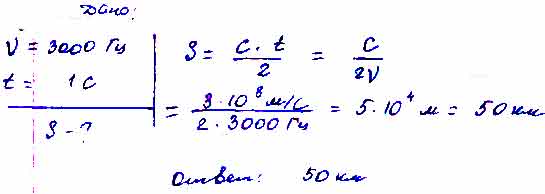 Дано:
ν = 3000 Гц
t = 1 с
S - ?
S = c · t / 2 = c / 2ν
= 3 · 10⁸ м/с / 2 · 3000 Гц = 5 · 10⁴ м = 50 км
Ответ: 50 км